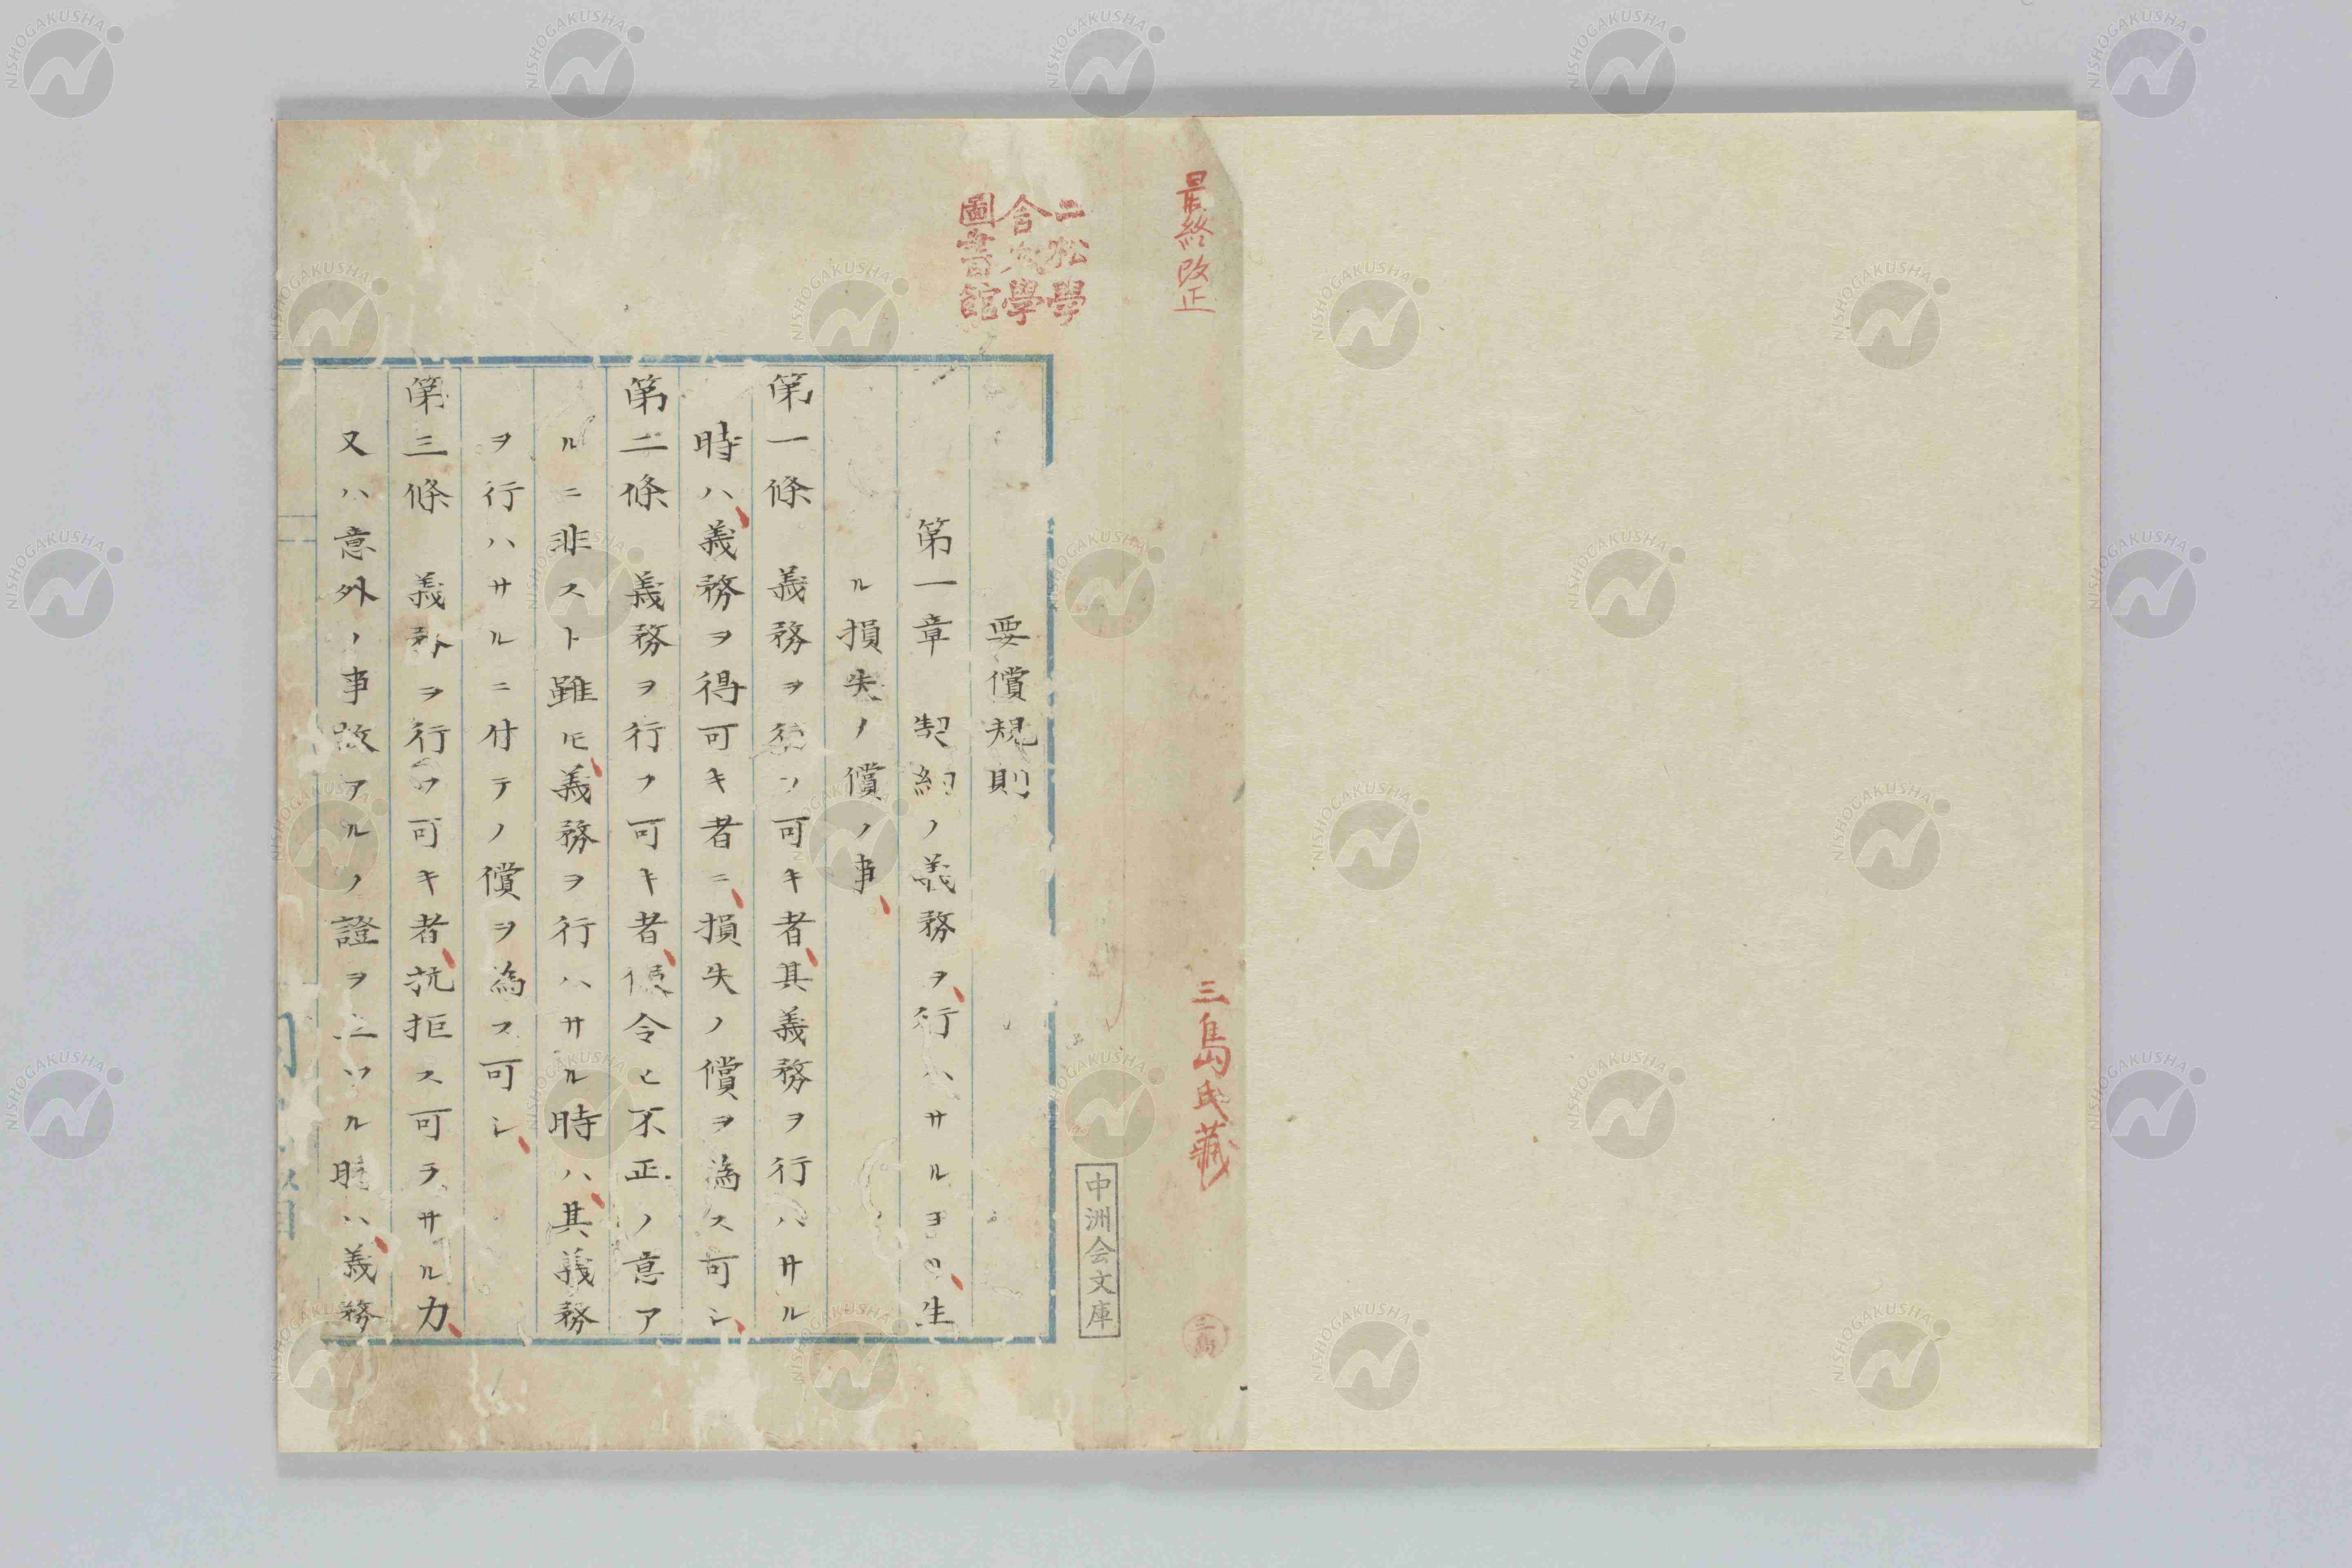 最終改正
三島氏藏
三島
二松學
舎大學
圖書館
中洲会文庫
要償規則
第一章 契約ノ義務ヲ行ハサルヨリ生
ル損失ノ償ノ事
第一條 義務ヲ行フ可キ者其義務ヲ行ハサル
時ハ義務ヲ得可キ者ニ損失ノ償ヲ為ス可シ
第二條 義務ヲ行フ可キ者假令ヒ不正ノ意ア
ルニ非スト雖𪜈義務ヲ行ハサル時ハ其義務
ヲ行ハサルニ付テノ償ヲ為ス可シ
第三條 義務ヲ行フ可キ者抗拒ス可ラサル力
又ハ意外ノ事故アルノ證ヲ立ツル時ハ義務
NISHOGAKUSHA